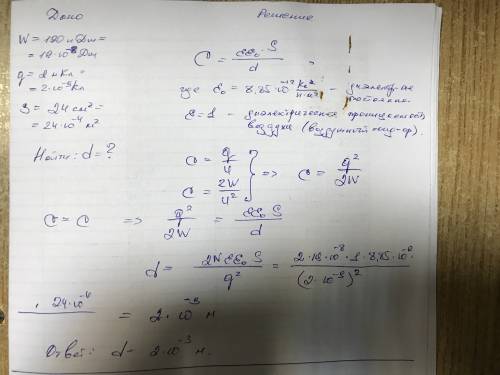 Дано
W = 190 нДж =
= 19·10⁻⁸ Дж
q = 2 нКл =
= 2·10⁻⁹ Кл
S = 24 см² =
= 24·10⁻⁴ м²
Найти: d = ?
Решение
C = εε₀·S / d
где ε₀ = 8,85·10⁻¹² Кл²/Н·м² – диэлектр-ая постоян.
ε = 1 – диэлектрическая проницаемость
воздуха (воздушный конд-ор).
C = q/U
C = 2W/U² } => C = q²/2W
C = C => q²/2W = εε₀S/d
d = 2Wεε₀S / q² = 2·19·10⁻⁸·1·8,85·10
(2·10⁻⁹)²
· 24·10⁻⁴ = 2·10⁻³ м
Ответ: d = 2·10⁻³ м.